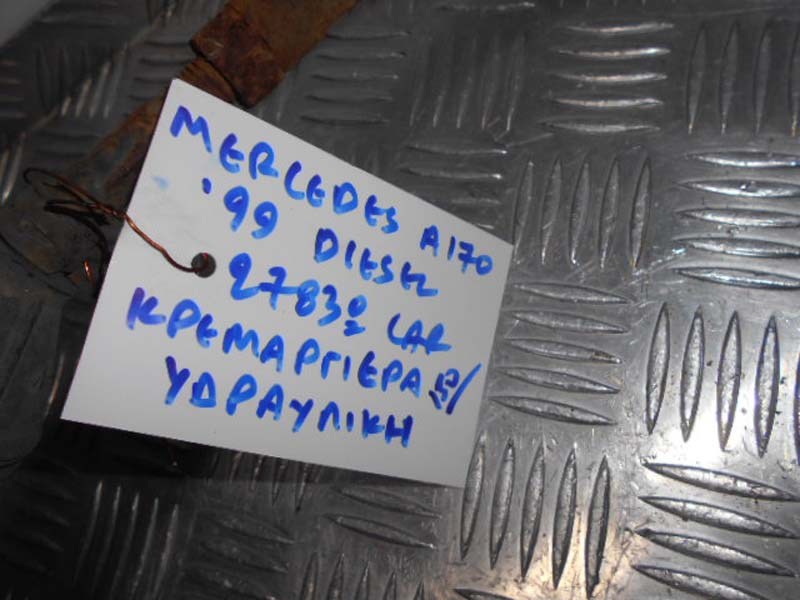 MERCEDES A170
'99 DIESEL
2783º CAR
ΚΡΕΜΑΡΓΙΕΡΑ
ΥΔΡΑΥΛΙΚΗ